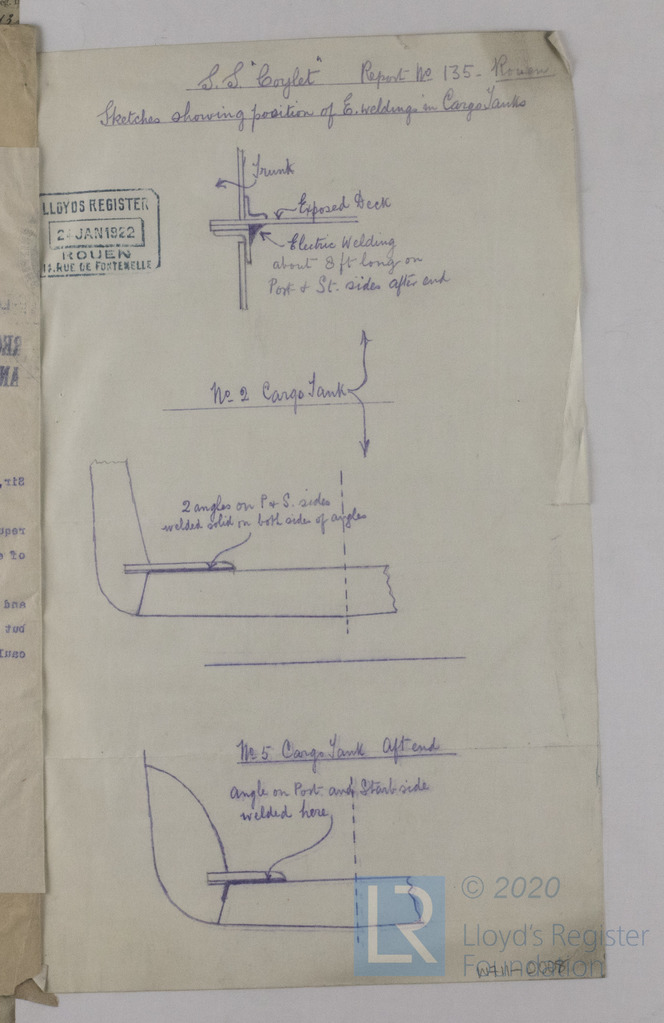 S.S. "Coylet" Report No 135 - Rouen
Sketches showing position of E. weldings in Cargo Tanks
Trunk
LLOYDS REGISTER
2 JAN 1922
ROUEN
RUE DE FONTENELLE
Exposed Deck
Electric Welding
about 8 ft long on
Port & St. sides after end
No 2 Cargo Tank
2 angles on P & S. sides
welded solid on both sides of angles
No 5 Cargo Tank Aft end
angle on Port and Starb side
welded here
LR
© 2020
Lloyd's Register
Foundation